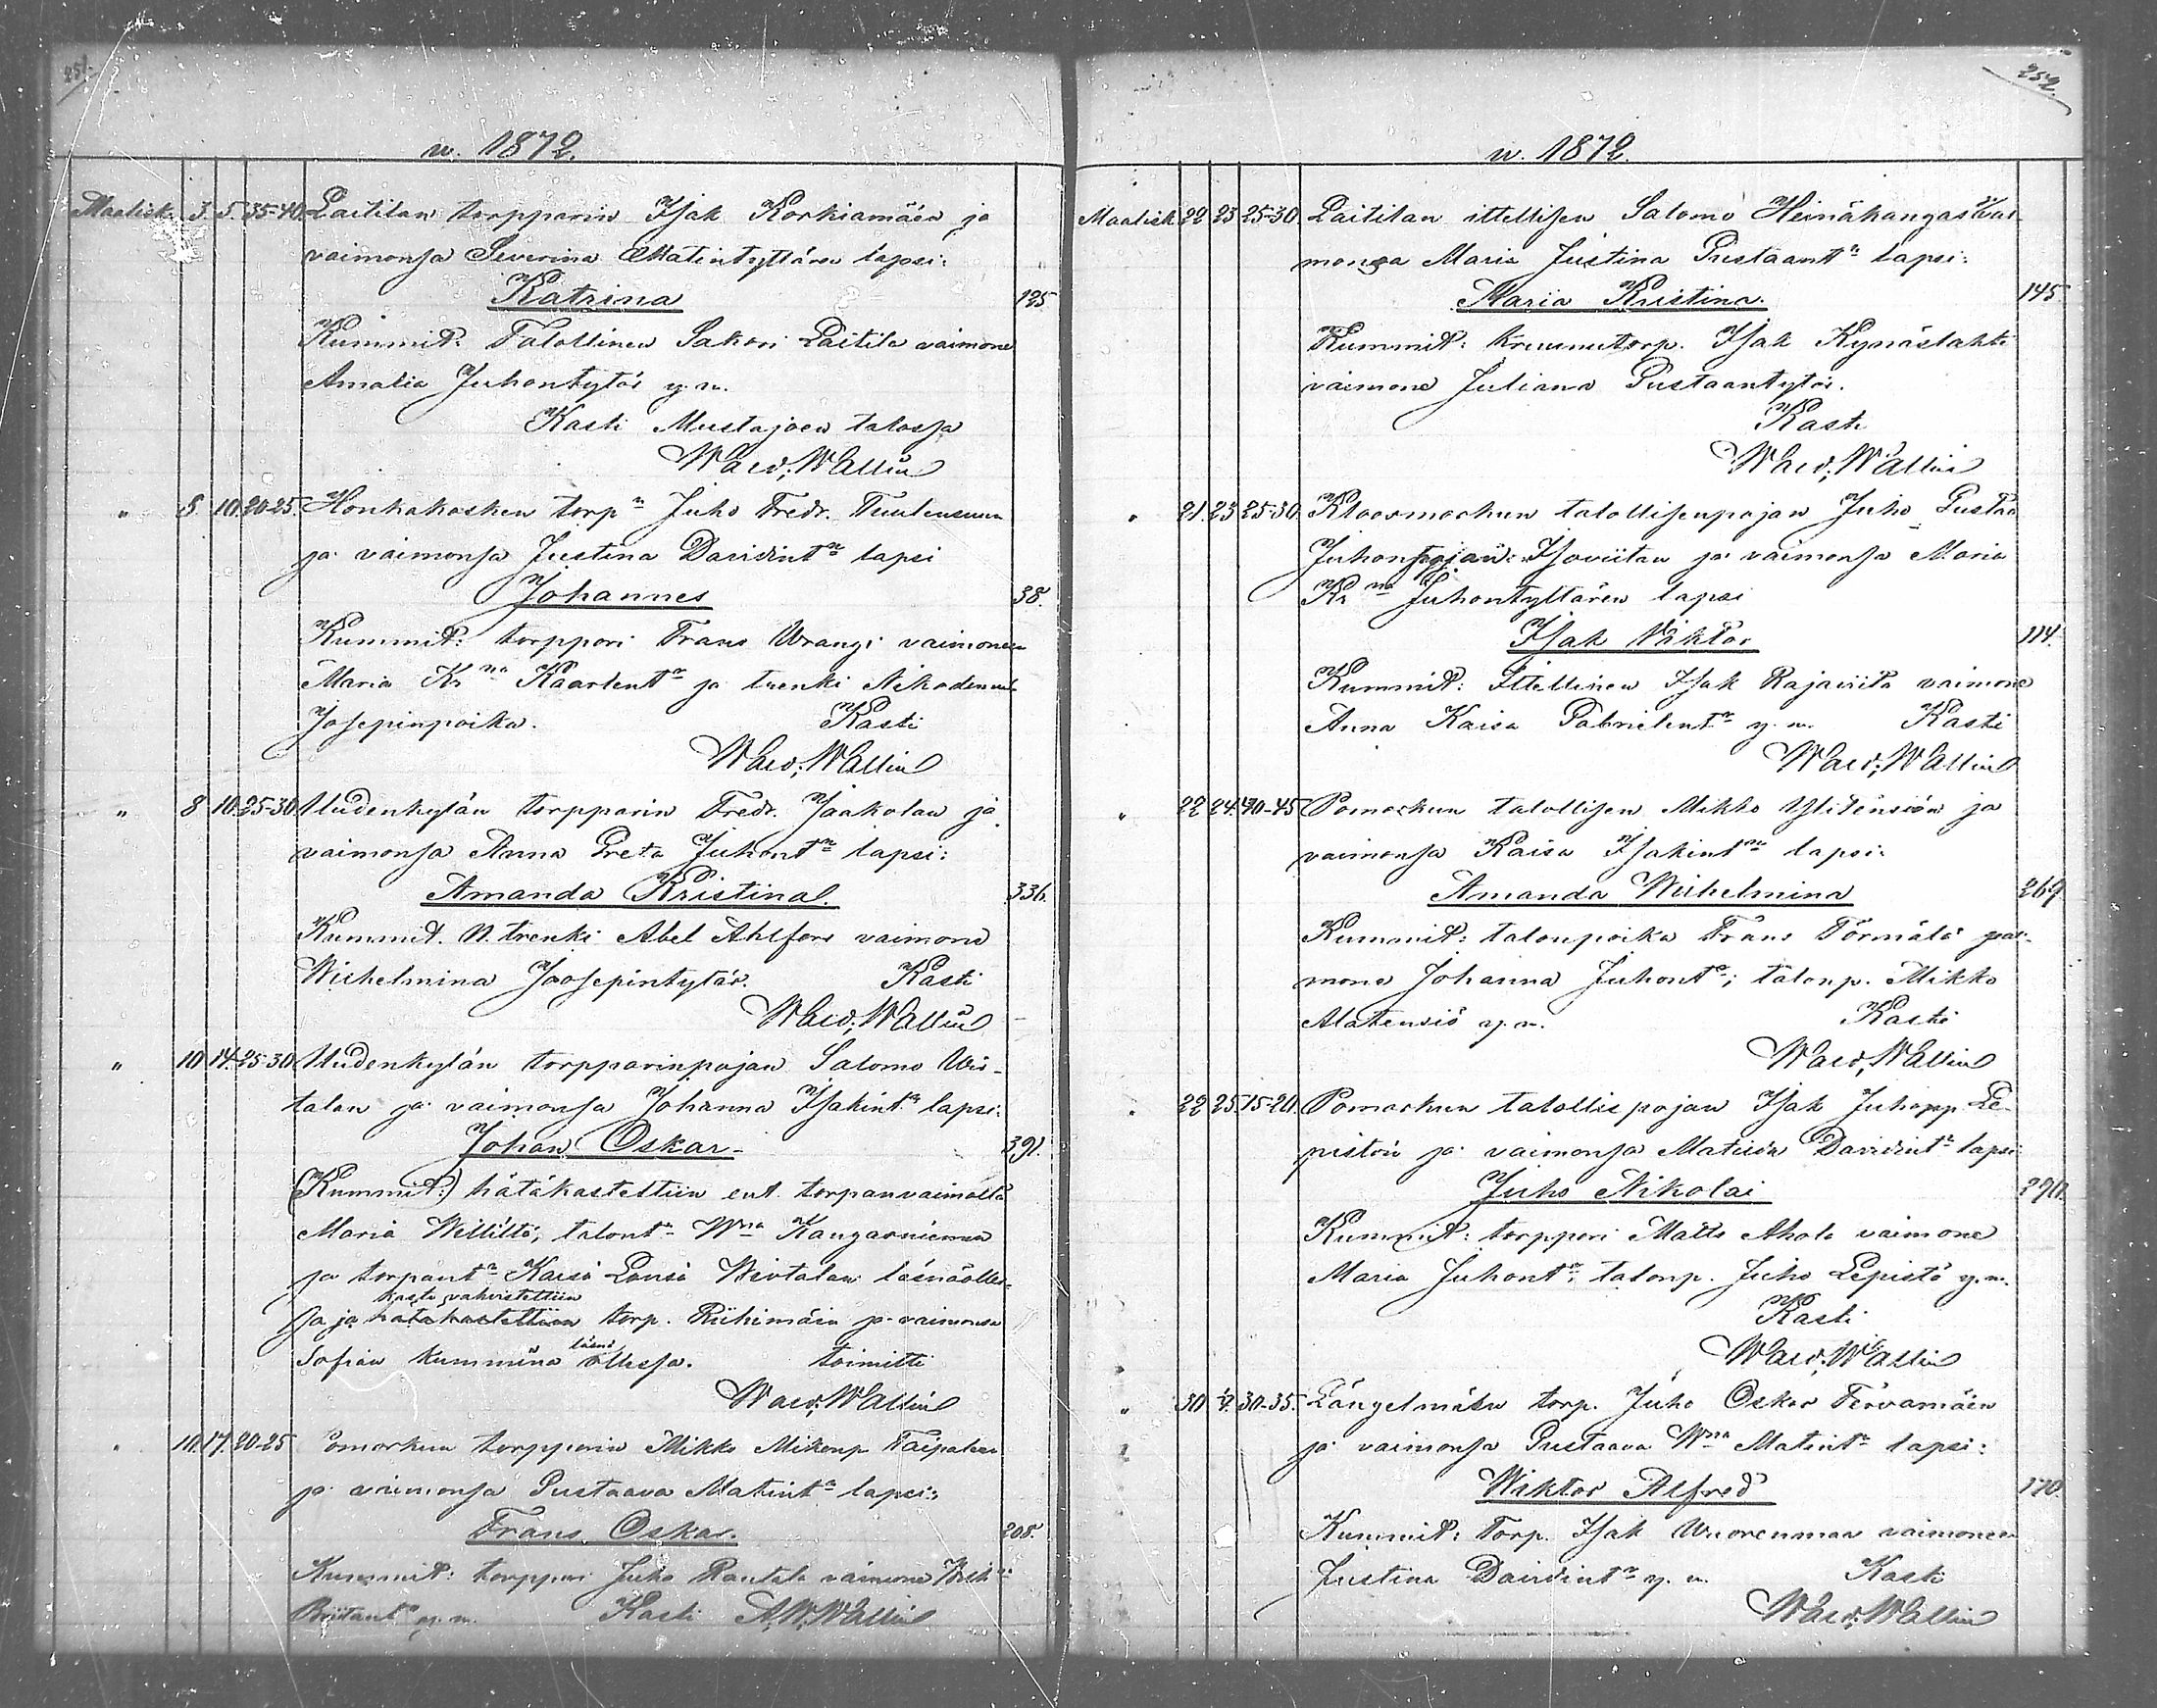 251.
w. 1872.
Maalisk. 3. 5. 35-40. Laitilan torpparin Isak Korkiamäen ja
vaimonsa Severina Matintyttären lapsi:
Katrina 125
Kummit: Talollinen Sakari Laitila vaimone
Amalia Juhontytär y. m.
Kasti Mustajoen talossa
Wald. Wallin
" 8. 10. 20-25. Honkakosken torpn Juho Fredr. Tuulensuun
ja vaimonsa Justina Davidintn lapsi
Johannes 38.
Kummit: torppari Frans Wrangi vaimoneen
Maria Krna Kaarlentr ja trenki Nikodemus
Josepinpoika. Kasti
Wald. Wallin
" 8 10. 25-30 Uudenkylän torpparin Fredr. Jaakolan ja
vaimonsa Anna Greta Juhontn lapsi:
Amanda Kristina. 336.
Kummit. N. trenki Abel Ahlfors vaimone
Wilhelmina Joosepintytär. Kasti
Wald. Wallin
" 10 14. 25-30 Uudenkylän torpparinpojan Salomo Wii-
talan ja vaimonsa Johanna Isakintn lapsi:
Johan Oskar 391.
(Kummit:) hätäkastettiin ent. torpanvaimolta
Maria Williltä, talontn Wna Kangasniemen
ja torpantn Kaisa Lovisa Wiitalan läsnäolles-
kaste vahvistettiin
sa ja hätäkastettiin torp. Riihimäen ja vaimonsa
läsnä
Sofian kummina ollessa. toimitti
Wald. Wallin
" 10. 17. 20-25 Pomarkun torpparin Mikko Mikonp. Taipaleen
ja vaimonsa Gustaava Matintn lapsi:
Frans Oskar. 208.
Kummit: torppari Juho Rantala vaimone
y. m. Kasti A. W. Wallin
252.
w. 1872.
Maalisk 22 23 25-30. Laitilan ittellisen Salomo Heinäkangas vai-
monsa Maria Justina Gustaantn lapsi:
Maria Kristina. 145
Kummit: Kruunutorp. Isak Kynäslahti
vaimone Juliana Gustaantytär.
Kasti
Wald. Wallin
" 21. 23 25-30. Kloosmarkun talollisenpojan Juho Gustaa
Juhonpojan Isoviitan ja vaimonsa Maria
Krna Juhontyttären lapsi
Isak Viktor 114.
Kummit: Ittellinen Isak Rajaviita vaimone
Anna Kaisa Gabrielintr y. m. Kasti
Wald. Wallin
" 22 24. 40-45 Pomarkun talollisen Mikko Ylitensiön ja
vaimonsa Kaisa Isakintrn lapsi:
Amanda Wilhelmina 269
Kummit: talonpoika Frans Törmälä vai-
mone Johanna Juhontr; talonp. Mikko
Alatensiö y. m. Kasti
Wald. Wallin
" 22 25 15-20. Pomarkun talollispojan Isak Juhonp. Le-
pistön ja vaimonsa Matildan Davidintn lapsi
Juho Nikolai 270.
Kummit: torppari Matts Ahola vaimone
Maria Juhontr, talonp. Juho Lepistö y. m.
Kasti
Wald. Wallin
" 30 1/4. 30-35. Längelmäen torp. Juho Oskar Tervamäen
ja vaimonsa Gustaava Wna Matintn lapsi:
Wiktor Alfred 170.
Kummit: Torp. Isak Wuorenmaa vaimoneen
Justina Davidintr y. m. Kasti
Wald. Wallin